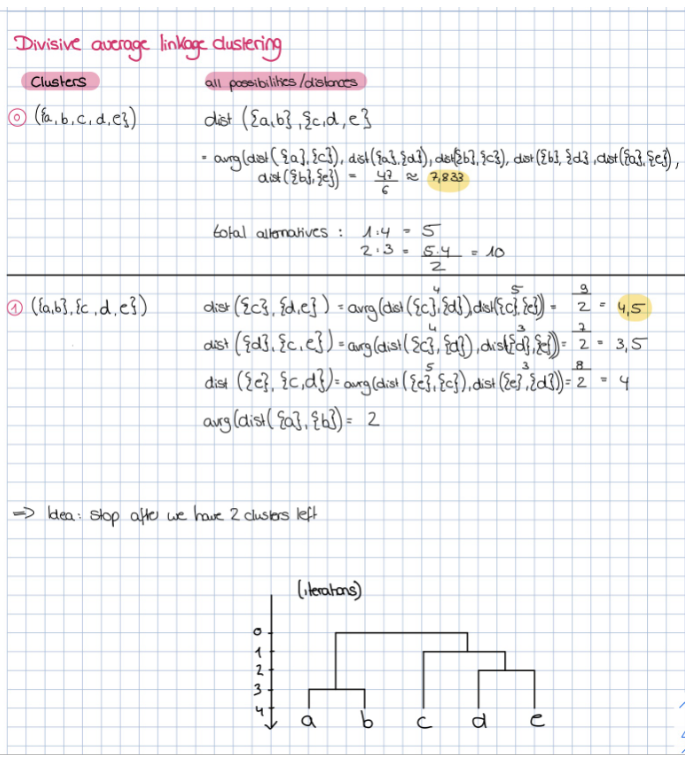 Divisive average linkage clustering
Clusters all possibilities/distances
⓪ ({a,b,c,d,e}) dist ({a,b},{c,d,e}
= avrg(dist({a},{c}), dist({a},{d}), dist({b},{c}), dist({b},{d}, dist({a},{e}),
dist({b},{e}) = 47/6 ≈ 7,833
total alternatives : 1·4 = 5
2·3 = 5·4/2 = 10
① ({a,b},{c,d,e}) dist ({c},{d,e}) = avrg(dist({c},{d}),dist({c},{e}) = 9/2 = 4,5
4 5
dist ({d},{c,e}) = avrg(dist({c},{d}),dist({d},{e}) = 7/2 = 3,5
4 3
dist ({e},{c,d}) = avrg(dist({e},{c}),dist({e},{d})) = 8/2 = 4
5 3
avrg(dist({a},{b}) = 2
=> Idea: stop after we have 2 clusters left
(iterations)
0
1
2
3
4
a b c d e